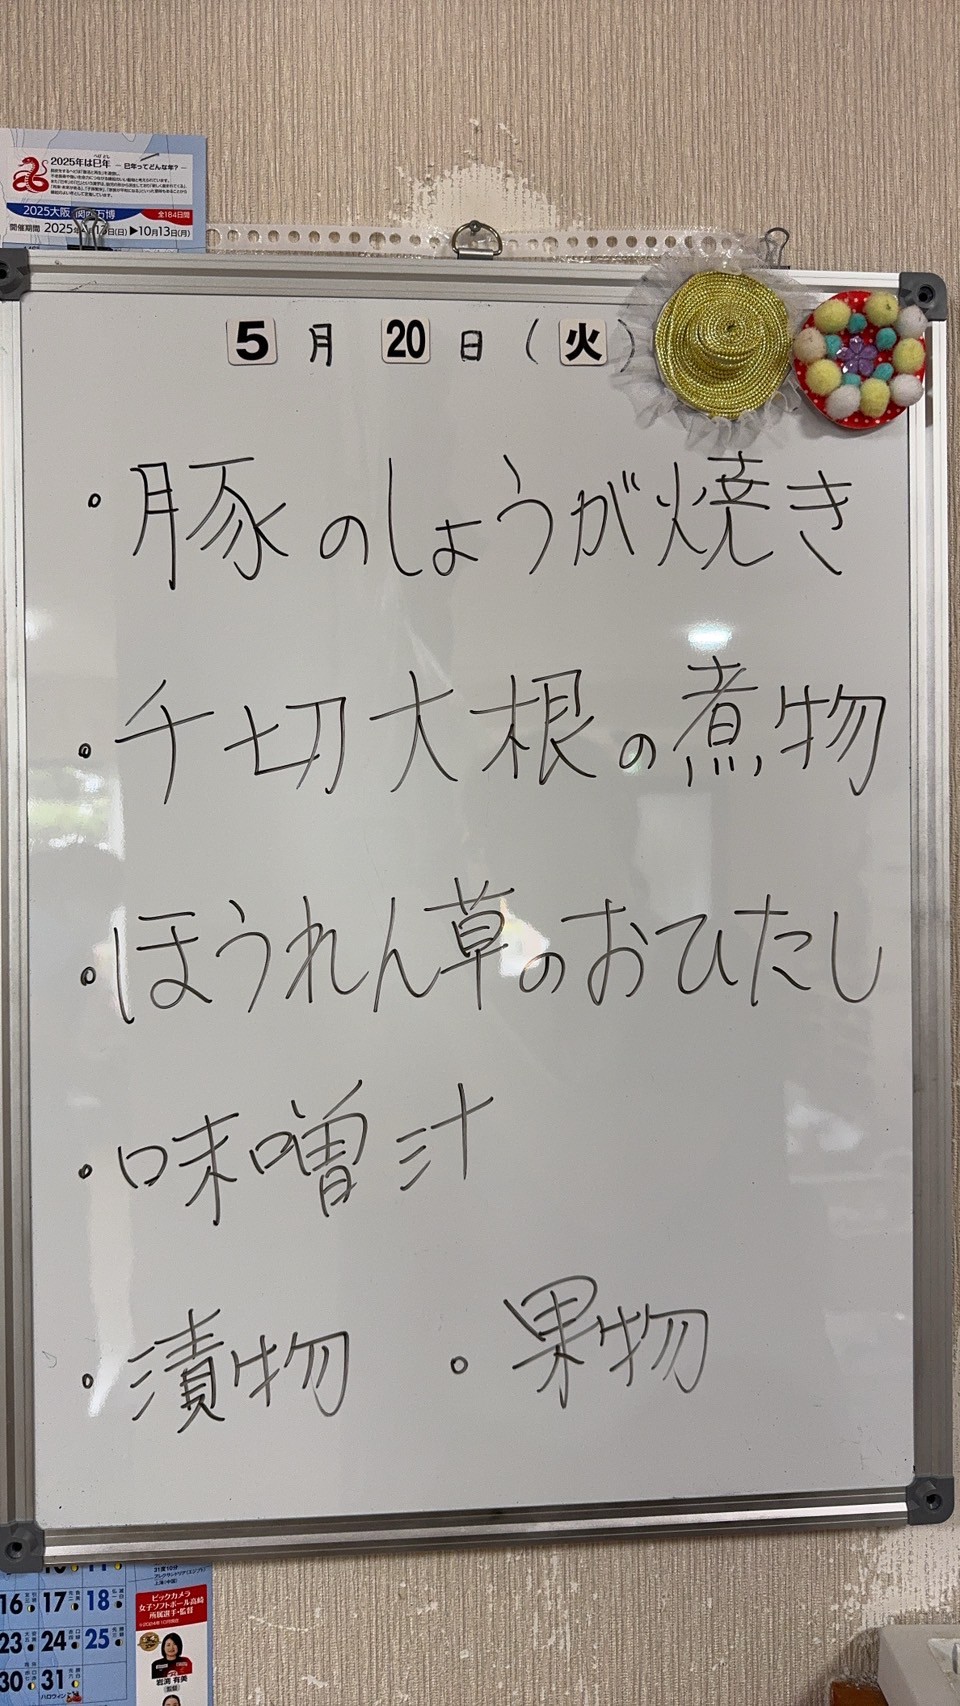 2025年は巳年 ー 巳年ってどんな年? ー
2025大阪・関西万博 全184日間
▶10月13日(月)
5月20日(火)
・豚のしょうが焼き
・千切大根の煮物
・ほうれん草のおひたし
・味噌汁
・漬物 ・果物
16 17 18
23 24 25
30 31
ハロウィン
ビックカメラ
女子ソフトボール高崎
所属選手・監督
岩渕 有美